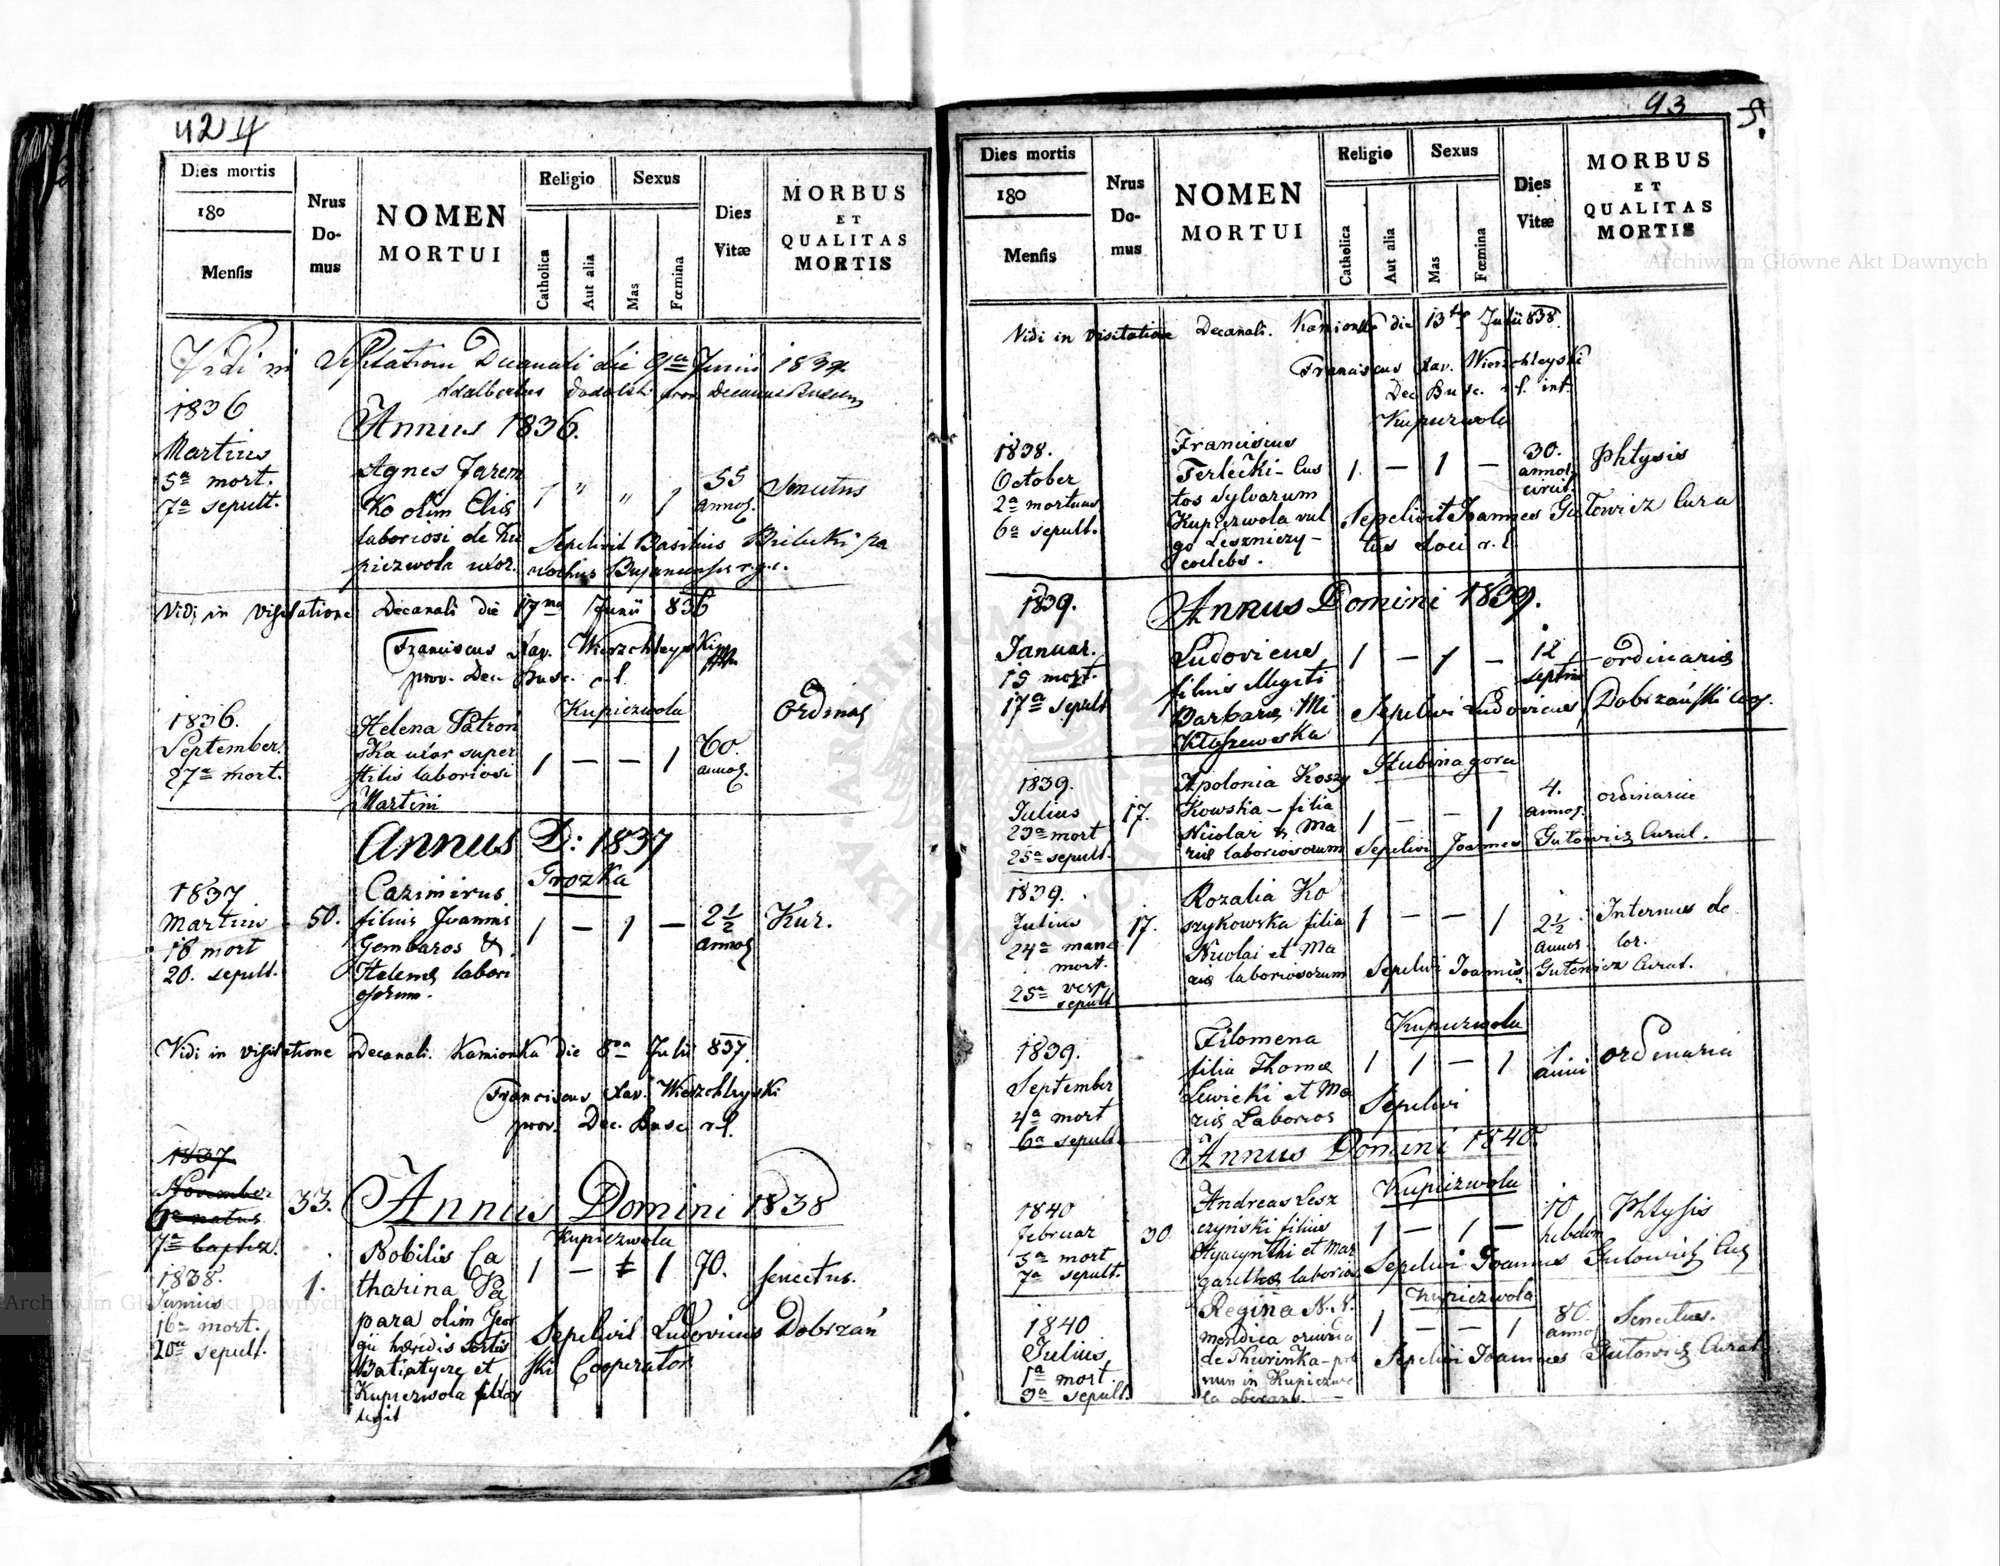 424
Dies mortis
180
Mensis
Nrus
Do-
mus
NOMEN
MORTUI
Religio
Catholica
Aut alia
Sexus
Mas
Fœmina
Dies
Vitæ
MORBUS
ET
QUALITAS
MORTIS
Vidi in Decanali die 9na Junii 1834
Adalbertus
1836
Annus 1836.
Martius
5a mort.
7a sepult.
Agnes Jarem
ko olim Eliæ
laboriosi de Ku
piezwola uxor.
1 " " 1
55
annor.
Senectus
Sepelivit Basilius Bilecki pa
rochus r.g.c.
Vidi in visitatione Decanali die 17ma Junii 836
Franciscus Xav. Wierzchleyski
prov. Dec. Busc. r.l.
Kupiezwola
1836.
September
27a mort.
Helena Patron
ska uxor super
stitis laboriosi
Martini
1 — — 1
60.
annor.
Ordinar
Annus D: 1837
Grozka
1837
Martius
18 mort
20. sepult.
50.
Cazimirus
filius Joannis
Gombaros &
Helenæ labori
osorum.
1 — 1 —
2½
annor
Kur.
Vidi in visitatione Decanali. Kamionka die 8va Julii 837.
Franciscus Xav. Wierzchleyski
prov. Dec. Busc. r.l.
1837
November
6a natus
7a baptiz.
33.
Annus Domini 1838
Kupiezwola
1838.
Junius
16a mort.
20a sepult.
1.
Nobilis Ca
tharina Pa
para olim Geor
gii hæredis sortis
Batiatycze et
Kupiezwola
1 — 1 1
70.
senectus.
Sepelivit Ludovicus Dobrzań
ski Cooperator
93
5.
Dies mortis
180
Mensis
Nrus
Do-
mus
NOMEN
MORTUI
Religio
Catholica
Aut alia
Sexus
Mas
Fœmina
Dies
Vitæ
MORBUS
ET
QUALITAS
MORTIS
Vidi in visitatione Decanali. Kamionka die 13tio Julii 838.
Franciscus Xav. Wierzchleyski
Dec. Busc. r.l. int.
Kupiezwola
1838.
October
2a mortuus
6a sepult.
Franciscus
Terlecki – Cus
tos sylvarum
Kupiezwola vul
go Leszniczy –
coelebs.
1. — 1 —
30.
annor.
circit.
Phtysis
Sepelivit Joannes Gutowicz Cura
tus Loci r.l.
1839.
Annus Domini 1839.
Januar.
15 mort.
17a sepult
Ludovicus
filius illegiti
Barbaræ Mi
kłaszewska
1 — 1 —
12
septim
ordinaria
Sepelivi Ludovicus Dobrzański Coop.
Stubinagora
1839.
Julius
23a mort
25a sepult.
17.
Apolonia Koszy
kowska – filia
Nicolai & Ma
riæ laboriosorum
1 — — 1
4.
annor.
ordinarii
Sepelivi Joannes Gutowicz Curat.
1839.
Julius
24a mane
mort.
25a vesp.
sepult
17.
Rozalia Ko
szykowska filia
Nicolai et Ma
riæ laboriosorum
1 — — 1
2½
annor.
Internus do
lor.
Sepelivi Joannes Gutowicz Curat.
Kupiezwola
1839.
September
4a mort
6a sepult.
Filomena
filia Thomæ
Lewicki et Ma
riæ Laborios
1 1 — 1
1
anni
ordinaria
Sepelivi
Annus Domini 1840.
Kupiezwola
1840
Februar
5a mort
7a sepult.
30
Andreas Lesz
czyński filius
Hyacynthi et Mar
garethæ laborios
1 — 1 —
10
hebdom
Phtysis
Sepelivi Joannes Gutowicz Cur
Kupiezwola
1840
Julius
1a mort.
3a sepult.
Regina N.N.
mendica oriunda
de Thurinka –
num in Kupiezwo
la oberans. —
1 — — 1
80.
annor
Senectus.
Sepelivi Joannes Gutowicz Curat
Archiwum Główne Akt Dawnych
Archiwum Główne Akt Dawnych